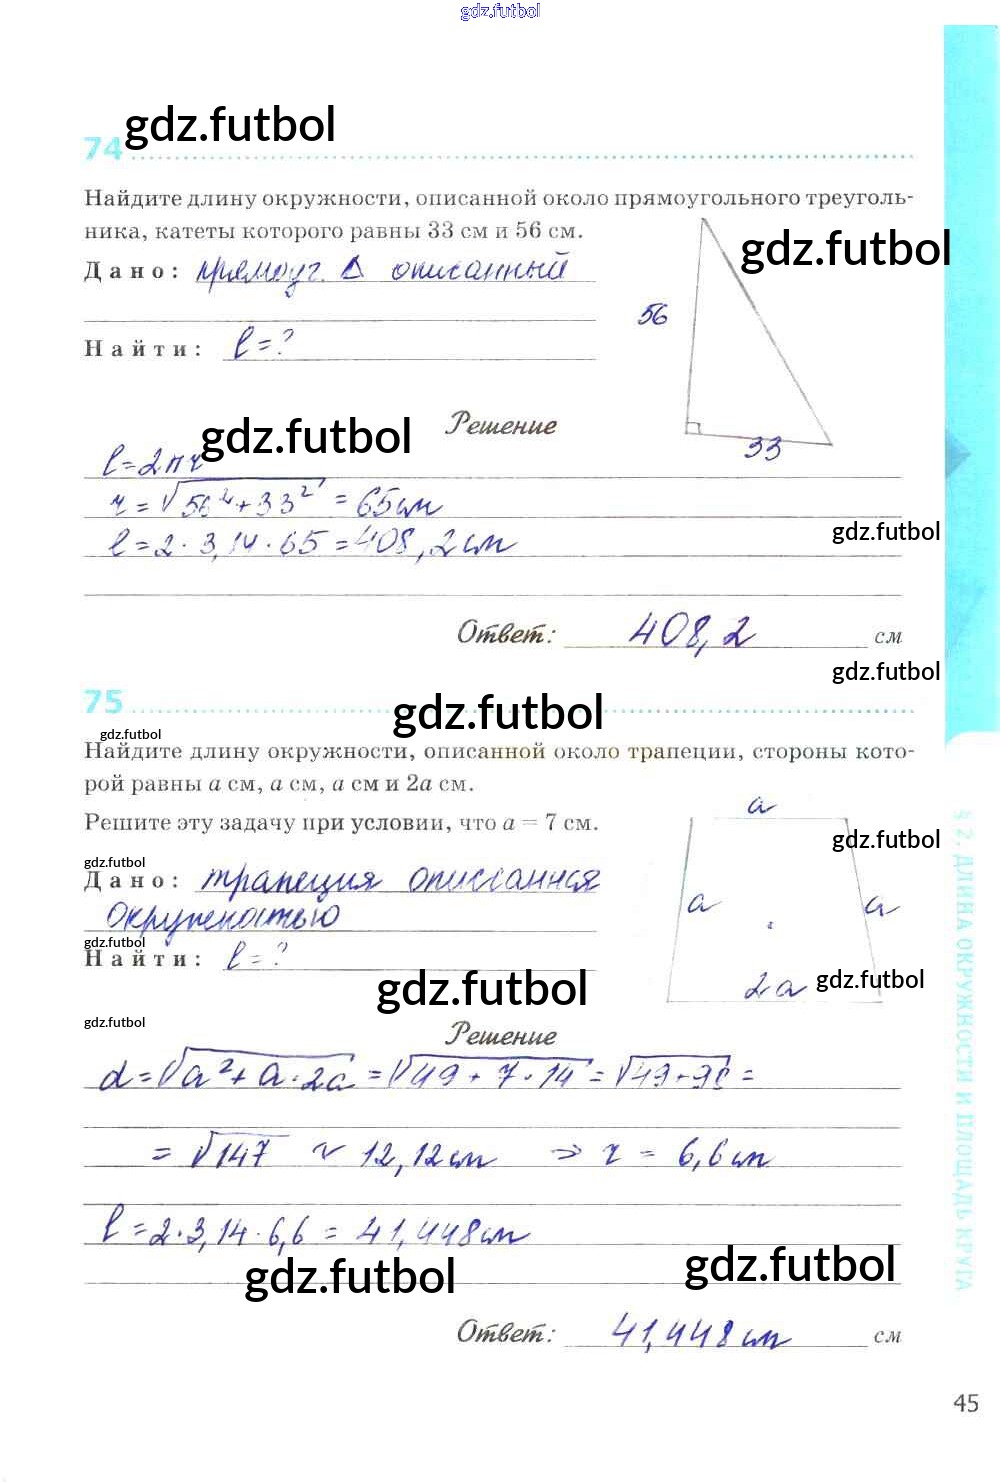 gdz.futbol
74 gdz.futbol
Найдите длину окружности, описанной около прямоугольного треуголь-
ника, катеты которого равны 33 см и 56 см.
gdz.futbol
Дано: прямоуг. Δ описанный
56
Найти: l = ?
33
Решение
gdz.futbol
l = 2πr
r = √56² + 33² = 65 см
l = 2 · 3,14 · 65 = 408,2 см
gdz.futbol
Ответ: 408,2 см
gdz.futbol
75
gdz.futbol
gdz.futbol
Найдите длину окружности, описанной около трапеции, стороны кото-
рой равны a см, a см, a см и 2a см.
a
Решите эту задачу при условии, что a = 7 см.
gdz.futbol
gdz.futbol
Дано: трапеция описанная
окружностью
a a
gdz.futbol
Найти: l = ?
2a
gdz.futbol
gdz.futbol
gdz.futbol
Решение
d = √a² + a · 2a = √49 + 7 · 14 = √49 + 98 =
= √147 ≈ 12,12 см ⇒ r = 6,6 см
l = 2 · 3,14 · 6,6 = 41,448 см
gdz.futbol
gdz.futbol
Ответ: 41,448 см см
§ 2. ДЛИНА ОКРУЖНОСТИ И ПЛОЩАДЬ КРУГА
45